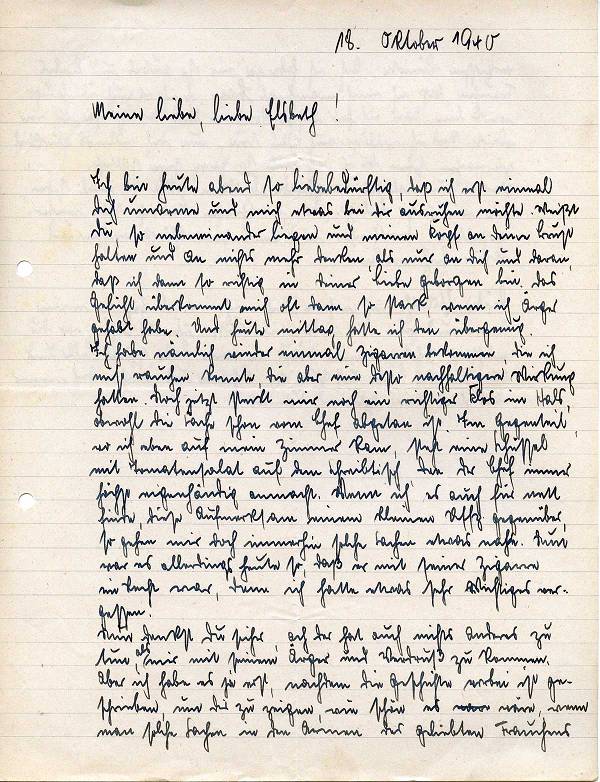 18. Oktober 1940
Meine liebe, liebe Elsbeth!
Ich bin heute abend so liebebedürftig, daß ich erst einmal
Dich umarmen und mich etwas bei Dir ausruhen möchte. Weißt
Du, so nebeneinander liegen und meinen Kopf an Deine Brust
halten und an nichts mehr denken, als nur an Dich und daran,
daß ich dann so richtig in Deiner Liebe geborgen bin. Das
Gefühl überkommt mich oft dann so stark, wenn ich Ärger
gehabt habe. Und heute mittag hatte ich den übergenug.
Ich habe nämlich wieder einmal Zigarren bekommen, die ich
nicht rauchen konnte, die aber eine desto nachhaltigere Wirkung
hatten. Noch jetzt steckt mir noch ein richtiger Klos im Hals,
obwohl die Sache schon vom Chef abgetan ist. Im Gegenteil,
wo ich eben auf mein Zimmer kam, steht eine Schüssel
mit Tomatensalat auf dem Schreibtisch, den der Chef immer
höchst eigenhändig anmacht. Wenn ich es auch für nett
finde, diese Aufmerksam seinem kleinen Uffz. gegenüber,
so gehen mir doch immerhin solche Sachen etwas nahe. Nun
war es allerdings heute so, daß er mit seiner Zigarre
im Recht war, denn ich hatte etwas sehr Wichtiges ver-
gessen.
Nun denkst Du sicher, ach der hat auch nichts anders zu
tun, als mir mit seinem Ärger und Verdruß zu kommen.
Aber ich habe es ja erst, nachdem die Geschichte vorbei ist ge-
schrieben, um Dir zu zeigen, wie schön es wäre, wenn
man solche Sachen in den Armen des geliebten Frauchens